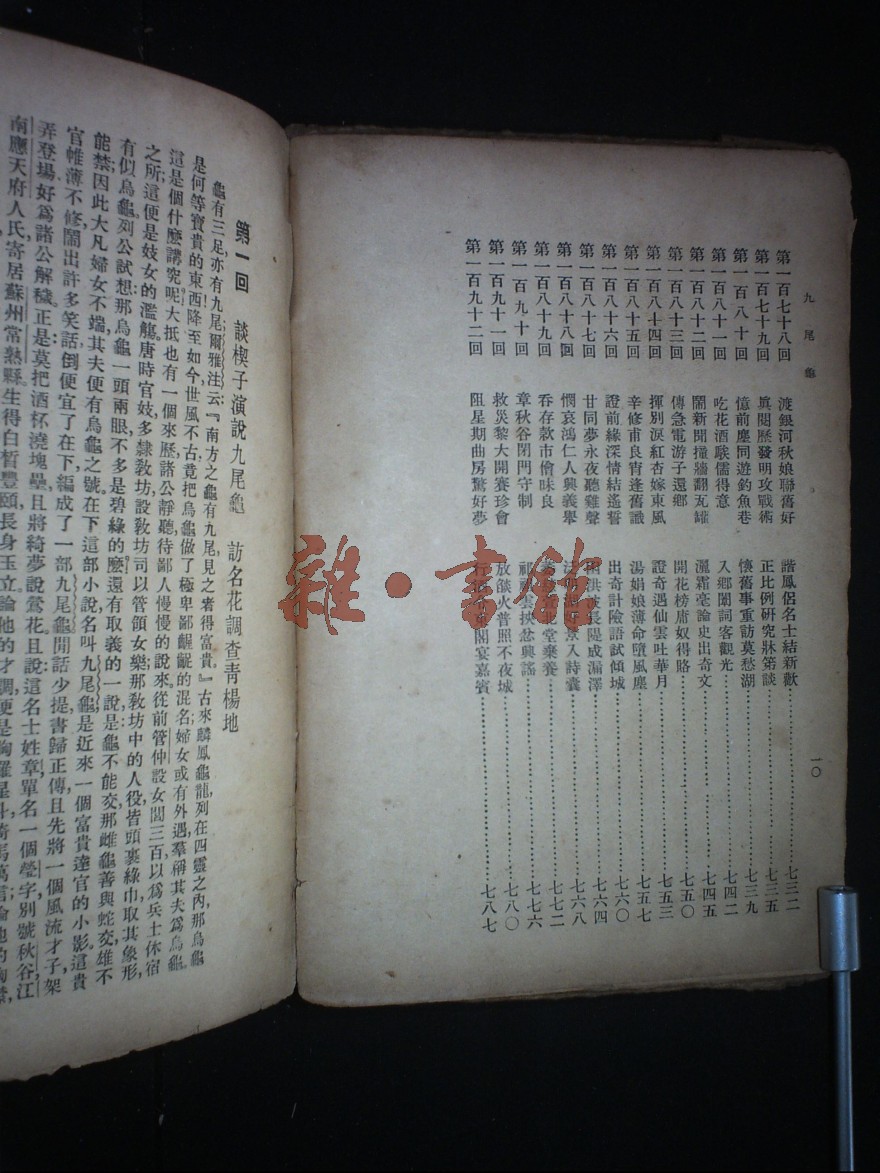 九尾龜
第一百七十八回 渡銀河秋娘聯舊好 諧鳳侶名士結新歡 七三二
第一百七十九回 眞閱歷發明攻戰術 正比例研究牀笫談 七三五
第一百八十回 憶前塵同遊釣魚巷 懷舊事重訪莫愁湖 七三九
第一百八十一回 吃花酒騃儒得意 入鄉闈詞客觀光 七四二
第一百八十二回 鬧新聞撞牆翻瓦罐 灑霜毫論史出奇文 七四五
第一百八十三回 傳急電游子還鄉 開花榜庸奴得賂 七五〇
第一百八十四回 揮別淚紅杏嫁東風 證奇遇仙雲吐華月 七五三
第一百八十五回 辛修甫良宵逢舊識 湯娟娘薄命墮風塵 七五七
第一百八十六回 證前緣深情結遙誓 出奇計險語試傾城 七六〇
第一百八十七回 甘同夢永夜聽雞聲 七六四
第一百八十八回 憫哀鴻仁人興義舉 洪波長隄成漏澤 七六八
第一百八十九回 吞存款市儈昧良 景入詩囊 七七二
第一百九十回 章秋谷閉門守制 北堂棄養 七七六
第一百九十一回 救災黎大開賽珍會 放燄火普照不夜城 七八〇
第一百九十二回 阻星期曲房驚好夢 東閣宴嘉賓 七八七
一〇
雜·書館
第一回 談楔子演說九尾龜 訪名花調查靑楊地
龜有三足亦有九尾爾雅注云『南方之龜有九尾見之者得富貴』古來麟鳳龜龍列在四靈之內那烏龜
是何等寶貴的東西降至如今世風不古竟把烏龜做了極卑鄙齷齪的混名婦女或有外遇羣稱其夫爲烏龜
這是個什麽講究呢大抵也有一個來歷諸公靜聽待鄙人慢慢的說來從前管仲設女閭三百以爲兵士休宿
之所這便是妓女的濫觴唐時官妓多隸敎坊設敎坊司以管領女樂那敎坊中的人役皆頭裹綠巾取其象形
有似烏龜列公試想那烏龜一頭兩眼不多是碧綠的麽還有取義的一說是龜不能交那雌龜善與蛇交雄不
能禁因此大凡婦女不端其夫便有烏龜之號在下這部小說名叫九尾龜是近來一個富貴達官的小影這貴
官帷薄不修鬧出許多笑話倒便宜了在下編成了一部九尾龜閒話少提書歸正傳且先將一個風流才子架
弄登場好爲諸公解穢正是莫把酒杯澆塊壘且將綺夢說鶯花且說這名士姓章單名一個瑩字別號秋谷江
南應天府人氏寄居蘇州常熟縣生得白晳豐頤長身玉立論他的才調便是胸羅星斗倚馬萬言論他的胸襟